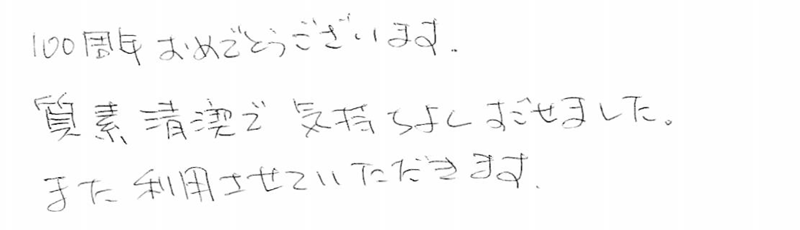 100周年おめでとうございます.
質素 清潔で 気持ちよくすごせました。
また 利用させていただきます.